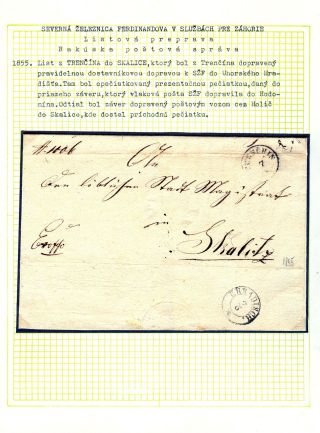 SEVERNÁ ŽELEZNICA FERDINANDOVA V SLUŽBÁCH PRE ZÁHORIE
Listová preprava
Rakúska poštová správa
1855. List z TRENČÍNA do SKALICE, ktorý bol z Trenčína dopravený
pravidelnou dostavníkovou dopravou k SŽF do Uhorského Hra-
dišťa. Tam bol opečiatkovaný prezentačnou pečiatkou, daný do
priameho záveru, ktorý vlaková pošta SŽF dopravila do Hodo-
nína. Odtiaľ bol záver dopravený poštovým vozom cez Holíč
do Skalice, kde dostal príchodnú pečiatku.
An
den löblichen Stadt Magistrat
in
Skalitz
TRENCHIN
HRADISCH